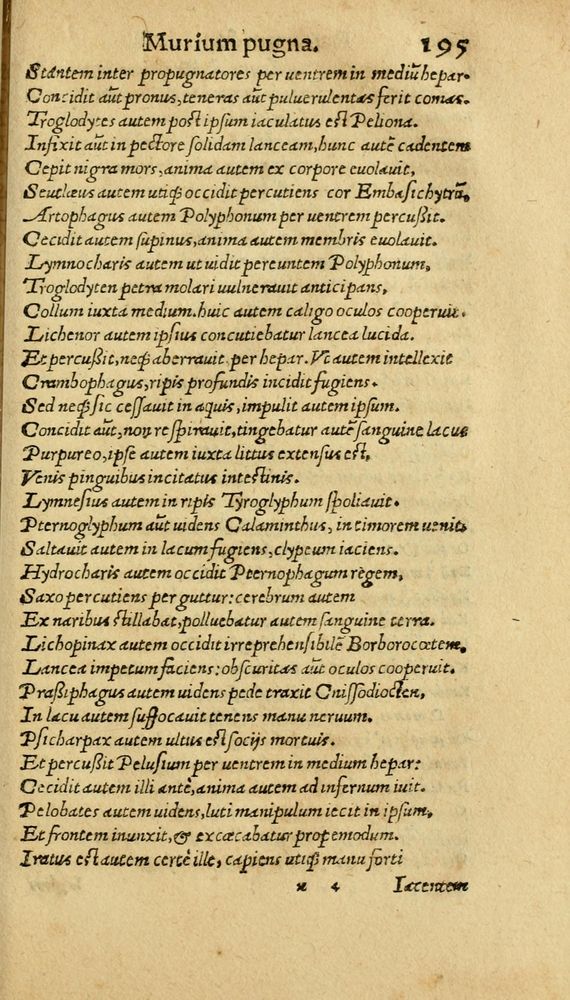 Murium pugna. 195
Stantem inter propugnatores per uentrem in mediũ hepar.
Concidit aũt pronus, teneras aũt puluerulentas ferit comas.
Troglodytes autem post ipsum iaculatus est Peliona.
Infixit aũt in pectore solidam lanceam, hunc autẽ cadentem
Cepit nigra mors, anima autem ex corpore euolauit,
Seutlæus autem utiq; occidit percutiens cor Embasichytrã,
Artophagus autem Polyphonum per uentrem percußit.
Cecidit autem supinus, anima autem membris euolauit.
Lymnocharis autem ut uidit pereuntem Polyphonum,
Troglodyten petra molari uulnerauit anticipans,
Collum iuxta medium. huic autem caligo oculos cooperuit.
Lichenor autem ipsius concutiebatur lancea lucida.
Et percußit, neq; aberrauit per hepar. Vt autem intellexit
Crambophagus, ripis profundis incidit fugiens.
Sed neq; sic cessauit in aquis, impulit autem ipsum.
Concidit aũt, non respirauit, tingebatur autẽ sanguine lacus
Purpureo, ipse autem iuxta littus extensus est,
Venis pinguibus incitatus intestinis.
Lymnesius autem in ripis Tyroglyphum spoliauit.
Pternoglyphum aũt uidens Calaminthus, in timorem uenit,
Saltauit autem in lacum fugiens, clypeum iaciens.
Hydrocharis autem occidit Pternophagum règem,
Saxo percutiens per guttur: cerebrum autem
Ex naribus stillabat, polluebatur autem sanguine terra.
Lichopinax autem occidit irreprehensibilẽ Borborocœtem,
Lancea impetum faciens: obscuritas aũt oculos cooperuit.
Praßiphagus autem uidens pede traxit Cnissodiocten,
In lacu autem suffocauit tenens manu neruum.
Psicharpax autem ultus est socijs mortuis.
Et percußit Pelusium per uentrem in medium hepar:
Cecidit autem illi antè, anima autem ad infernum iuit.
Pelobates autem uidens, luti manipulum iecit in ipsum,
Et frontem inunxit, & excæcabatur propemodum.
Iratus est autem certè ille, capiens utiq; manu forti
x 4 Iacentem